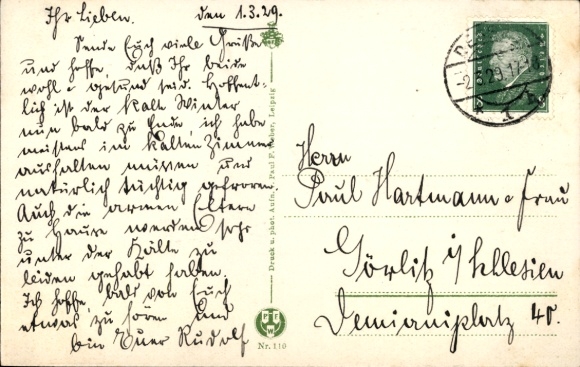 Ihr Lieben. den 1.3.29.
Sende Euch viele Grüße
und hoffe, daß Ihr beide
wohl u gesund seid. Hoffent-
lich ist der kalte Winter
nun bald zu Ende, ich habe
meistens im kalten Zimmer
aushalten müssen und
natürlich tüchtig gefroren.
Auch die armen Eltern
zu Hause werden sehr
unter der Kälte zu
leiden gehabt haben.
Ich hoffe, bald von Euch
etwas zu hören und
bin Euer Rudolf
Druck u. phot. Aufn. Paul F. Leipzig
Nr. 110
Herrn
Paul Hartmann u Frau
Görlitz i/Schlesien
Demianiplatz 40.